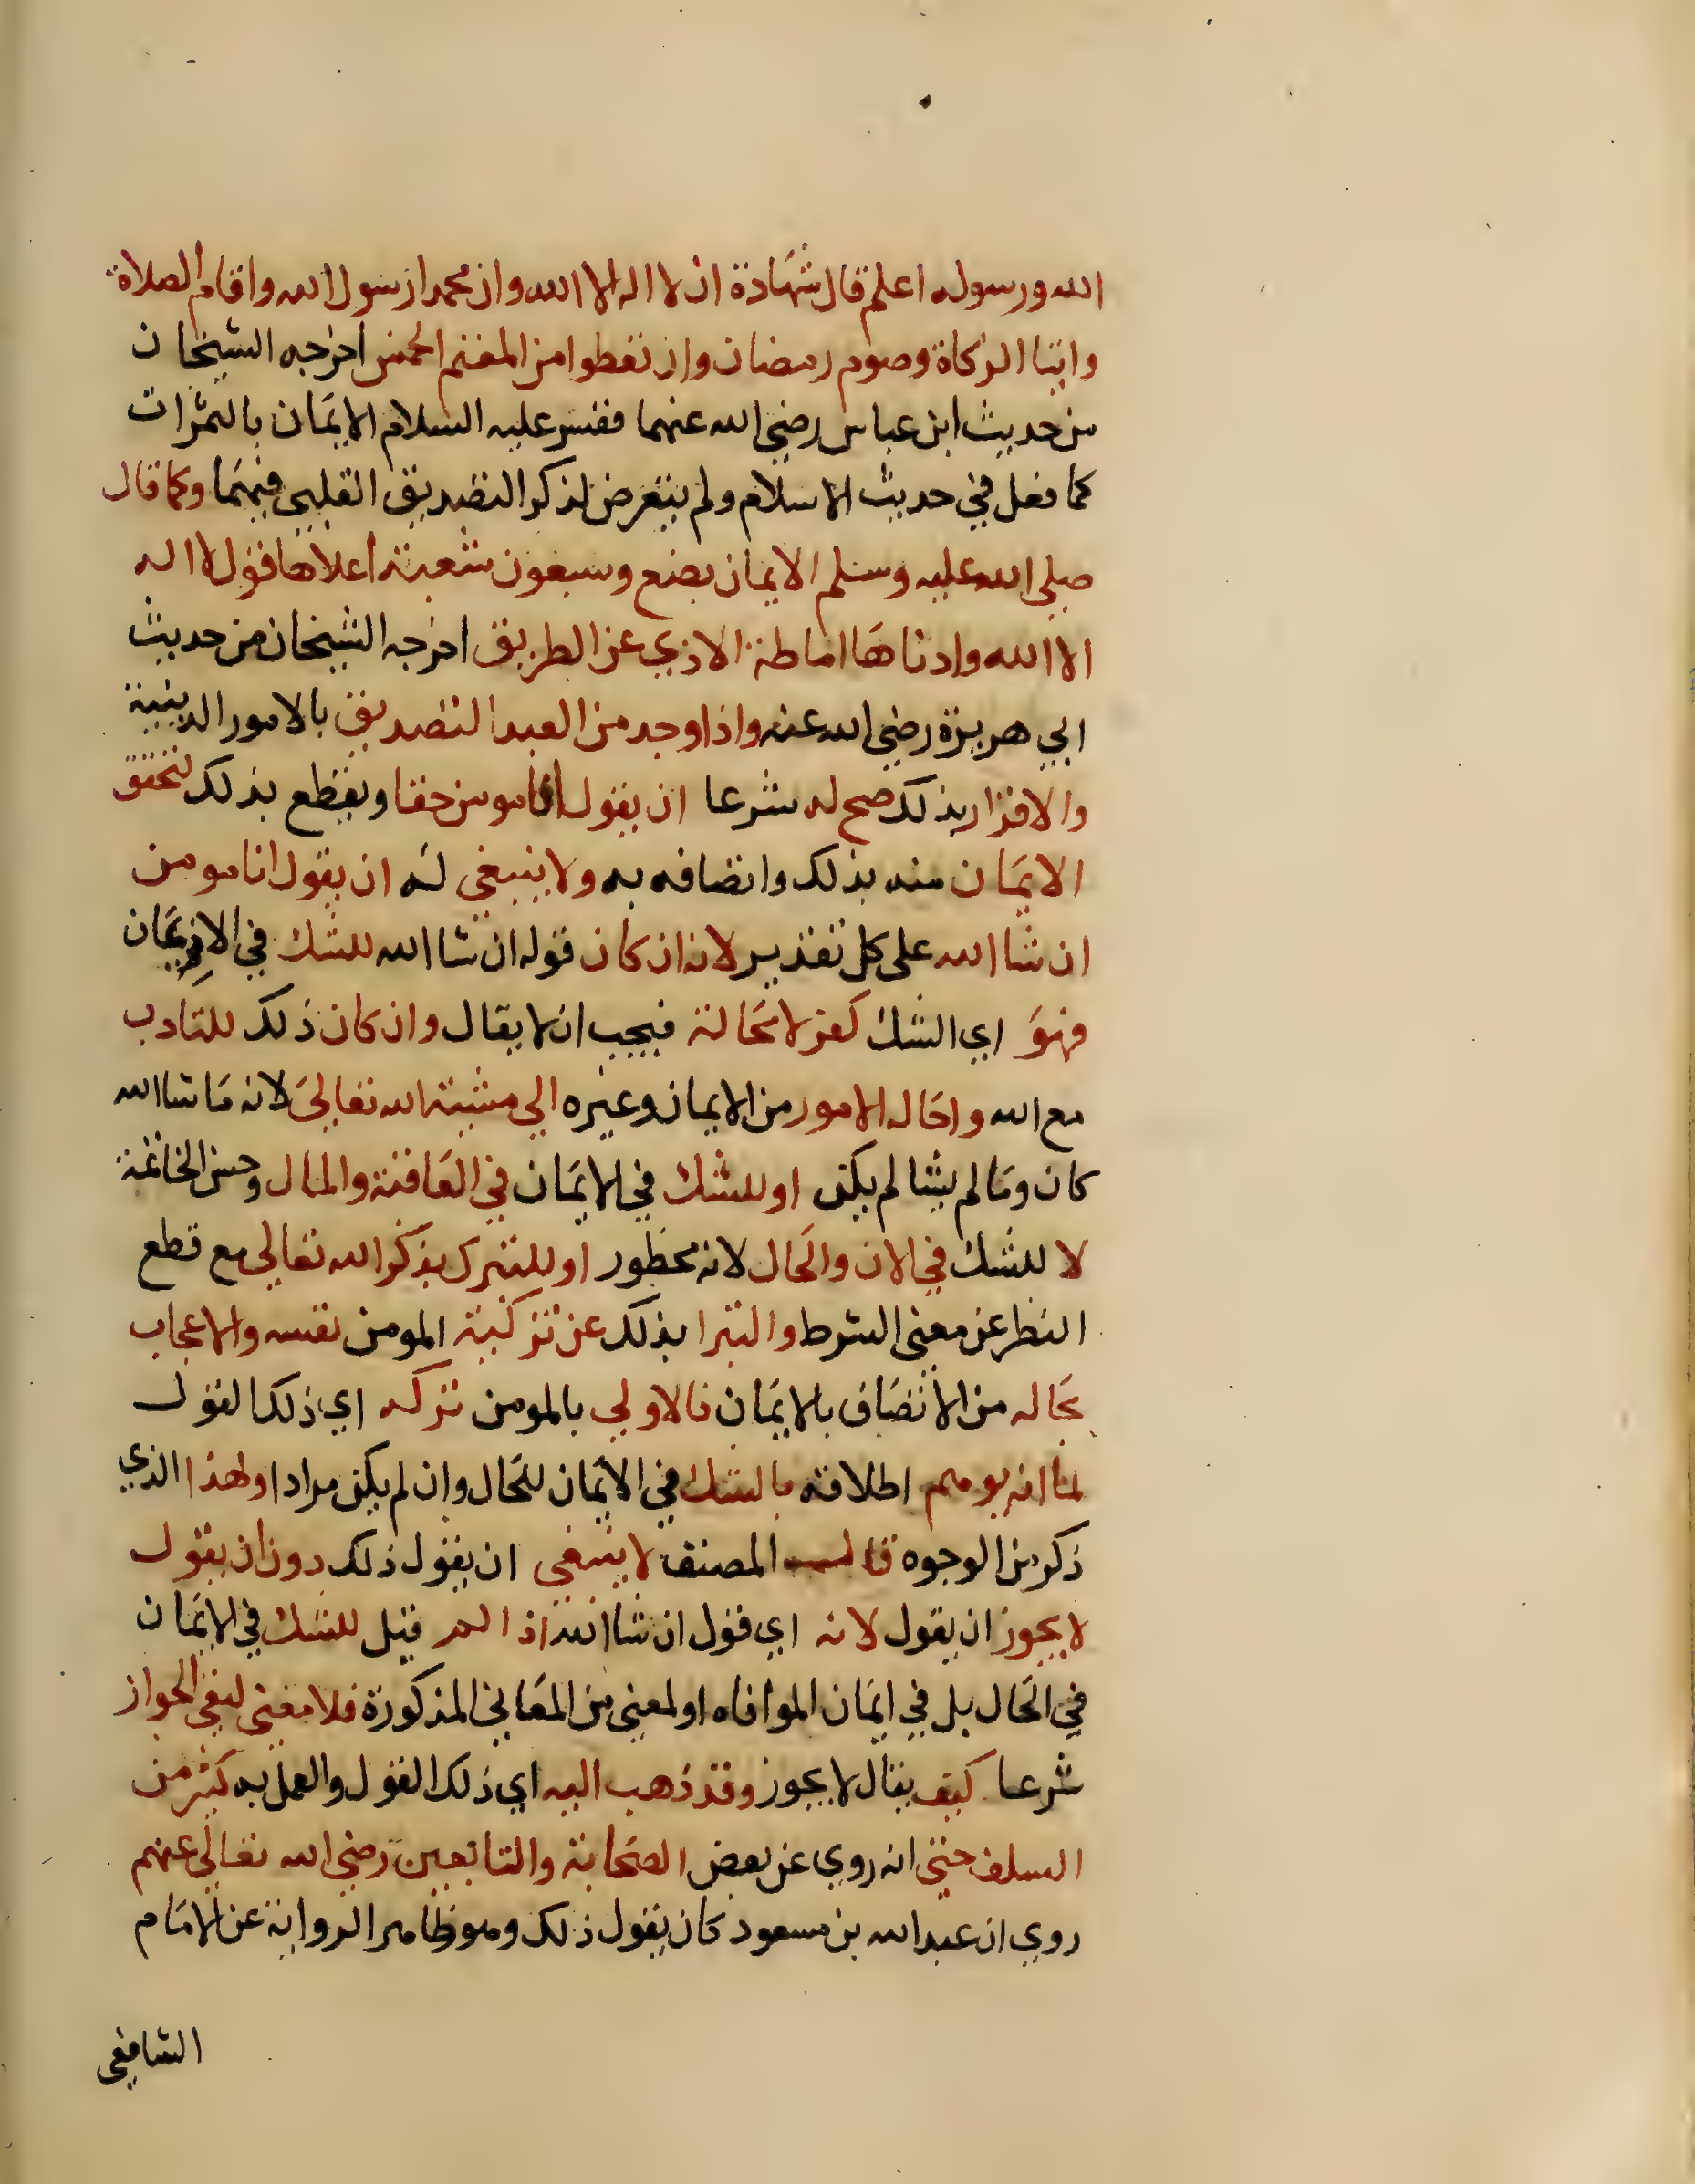 الله ورسوله اعلم قال شهادة ان لا اله الا الله وان محمدا رسول الله واقام الصلاة
وايتا الزكاة وصوم رمضان وان تعطوا من المغنم الخمس اخرجه الشيخان
من حديث ابن عباس رضي الله عنهما ففسر عليه السلام الايمان بالثمرات
كما فعل في حديث الاسلام ولم يتعرض لذكر التصديق القلبي فيهما وكما قال
صلي الله عليه وسلم الايمان بضع وسبعون شعبة اعلاها قول لا اله
الا الله وادناها اماطة الاذي عن الطريق اخرجه الشيخان من حديث
ابي هريرة رضي الله عنه واذا وجد من العبد التصديق بالامور الدينية
والاقرار بذلك صح له شرعا ان يقول انا مومن حقا ويقطع بذلك لتحقق
الايمان منه بذلك واتصافه به ولا ينبغي له ان يقول انا مومن
ان شا الله علي كل تقدير لانه ان كان قوله ان شا الله للشك في الايمان
فهو اي الشك كفر لا محالة فيجب ان لا يقال وان كان ذلك للتادب
مع الله واحاله الامور من الايمان وغيره الي مشيئة الله تعالي لانه ما شا الله
كان وما لم يشا لم يكن او للشك في الايمان في العاقبة والمال وحسن الخاتمة
لا للشك في الان والحال لانه محظور او للتبرك بذكر الله تعالي مع قطع
النظر عن معني الشرط والتبرا بذلك عن تزكية المومن نفسه والاعجاب
بحاله من الاتصاف بالايمان فالاولي بالمومن تركه اي ذلك القول
لما انه يوهم اطلاقه بالشك في الايمان للحال وان لم يكن مرادا ولهذا الذي
ذكر من الوجوه قال المصنف لا ينبغي ان يقول ذلك دون ان يقول
لا يجوز ان يقول لانه اي قول ان شا الله اذا لم قيل للشك في الايمان
في الحال بل في ايمان الموافاه او لمعني من المعاني المذكورة فلا معني لنفي الجواز
شرعا كيف يقال لا يجوز وقد ذهب اليه اي ذلك القول والعمل به كثير من
السلف حتي انه روي عن بعض الصحابة والتابعين رضي الله تعالي عنهم
روي ان عبد الله بن مسعود كان يقول ذلك وهو ظاهر الرواية عن الامام
الشافعي